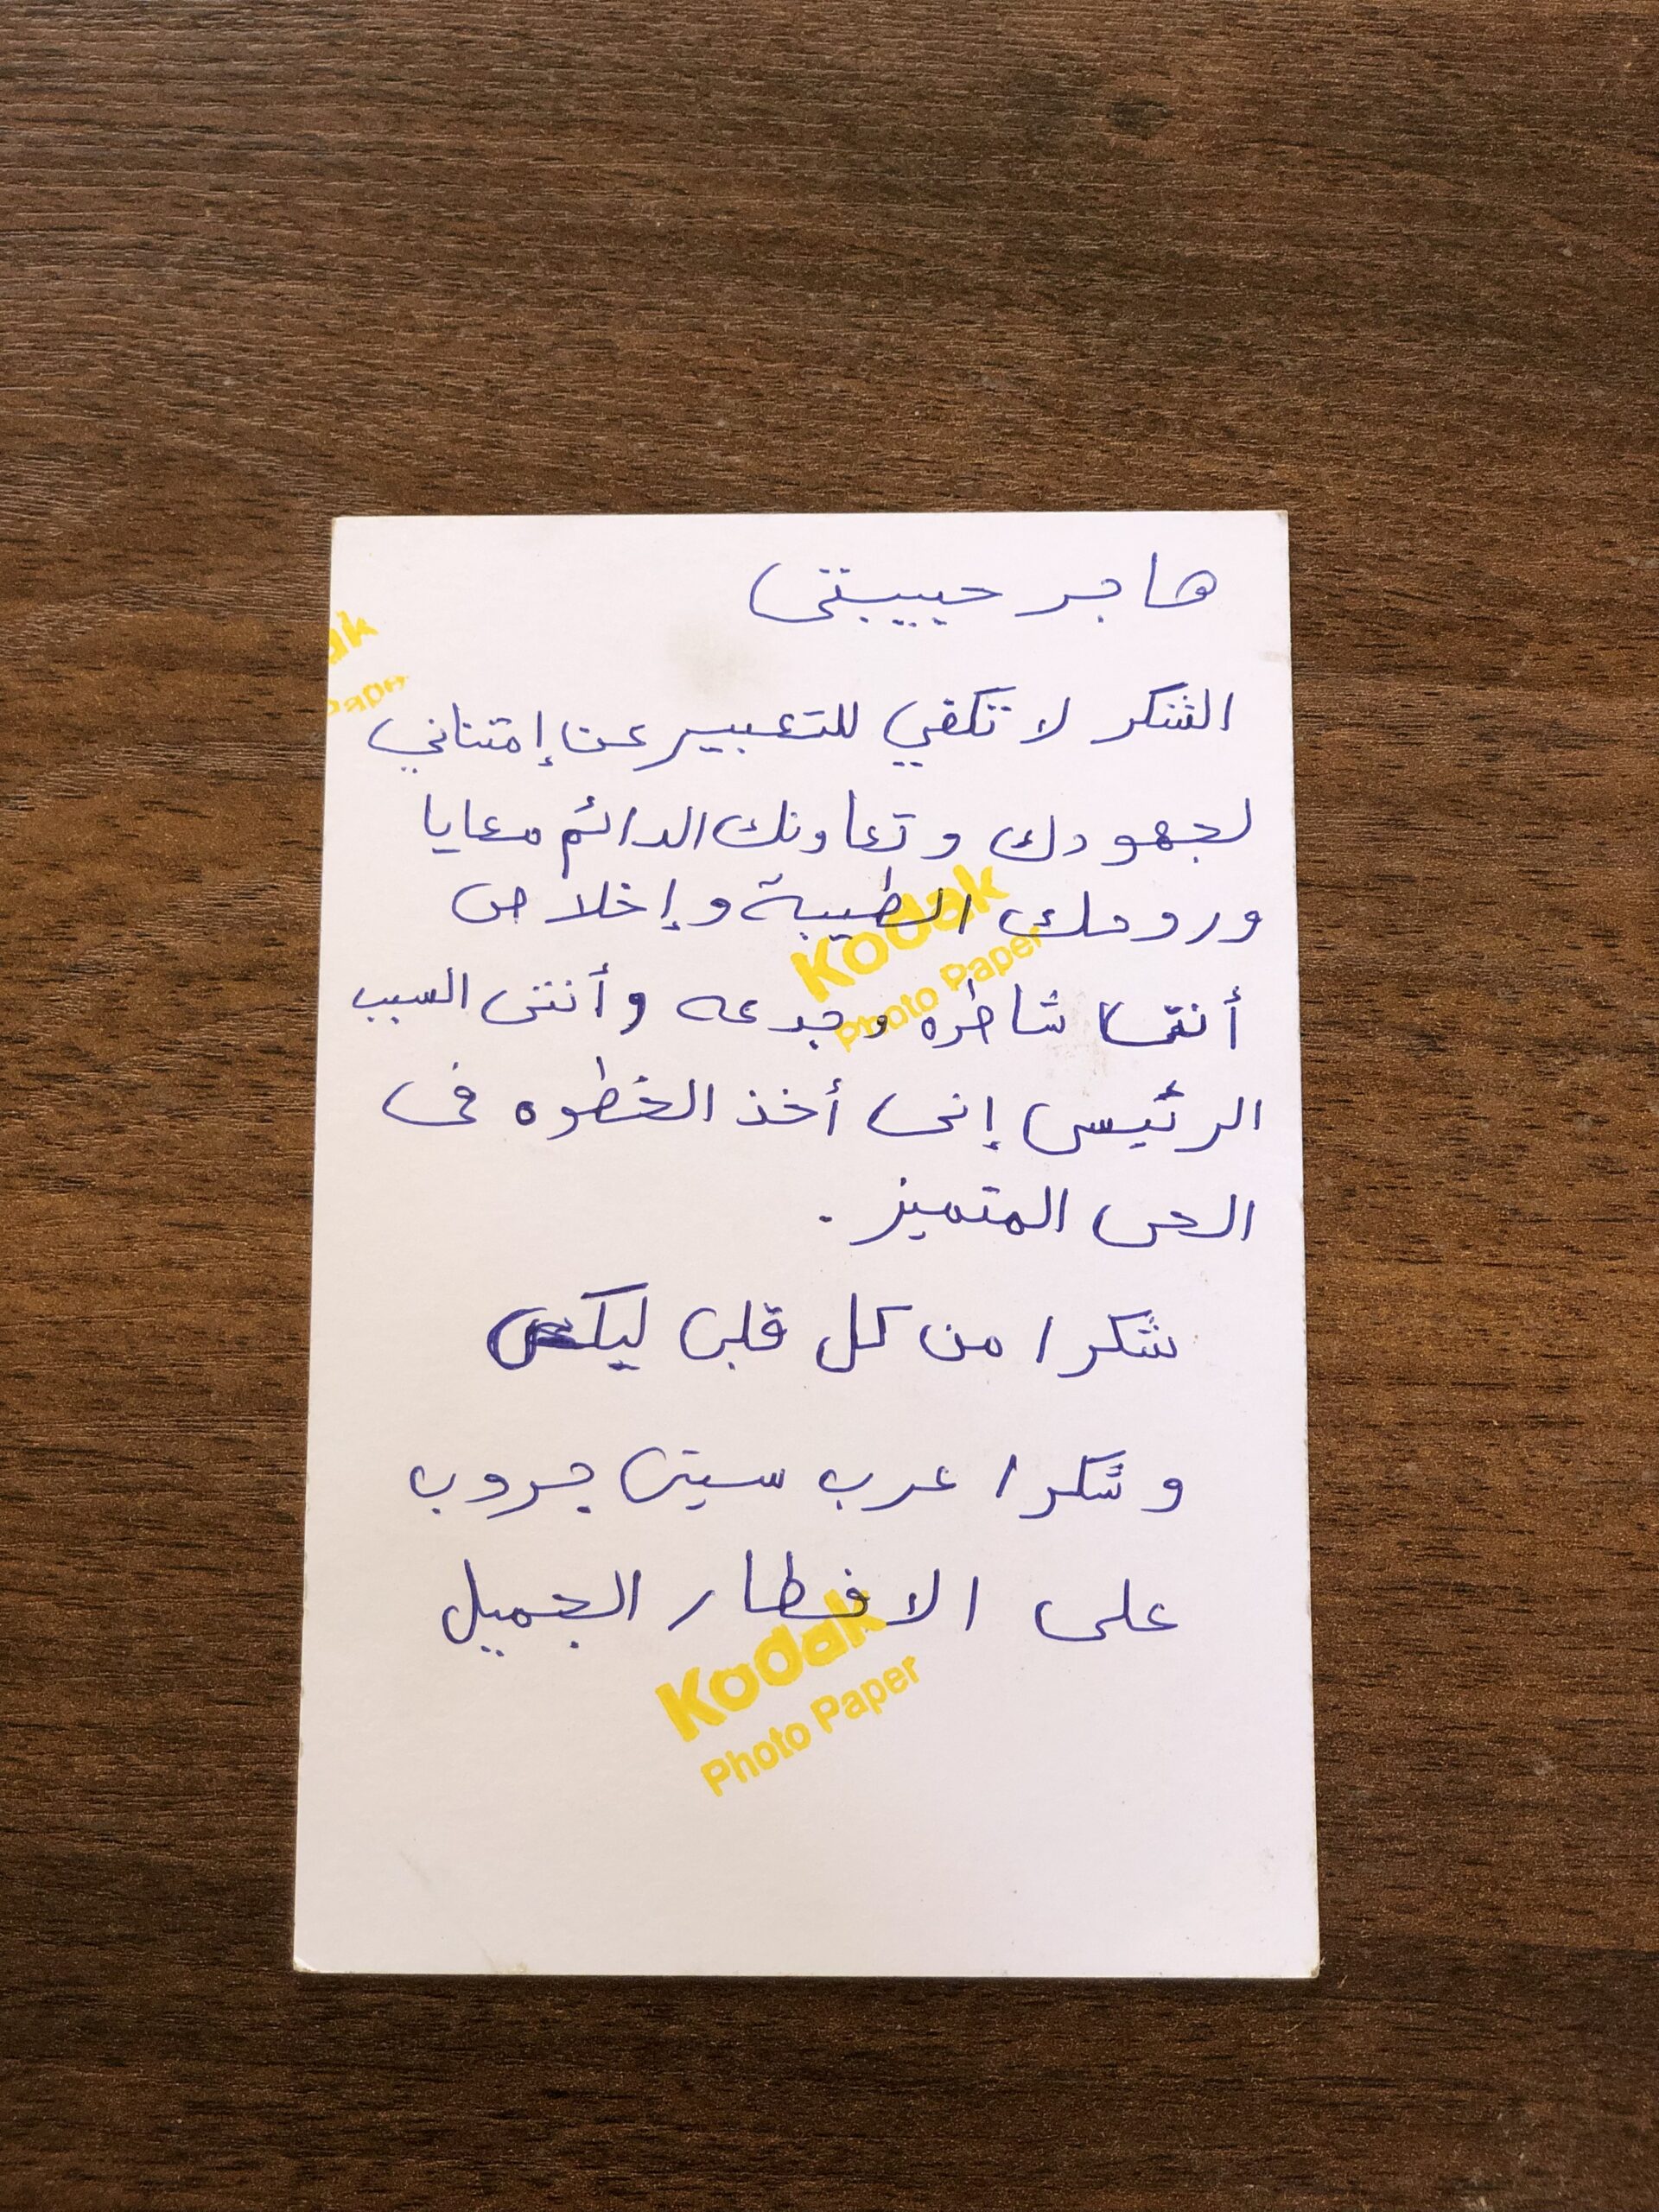 هاجر حبيبتى
الشكر لا تكفي للتعبير عن إمتناني
لجهودك وتعاونك الدائم معايا
وروحك الطيبة وإخلاص
أنتى شاطره وجدعه وأنتى السبب
الرئيسى إنى أخذ الخطوه فى
الحى المتميز.
شكرا من كل قلبى ليكى
وشكرا عرب سيتى جروب
على الافطار الجميل
Kodak
Photo Paper
Kodak
Photo Paper